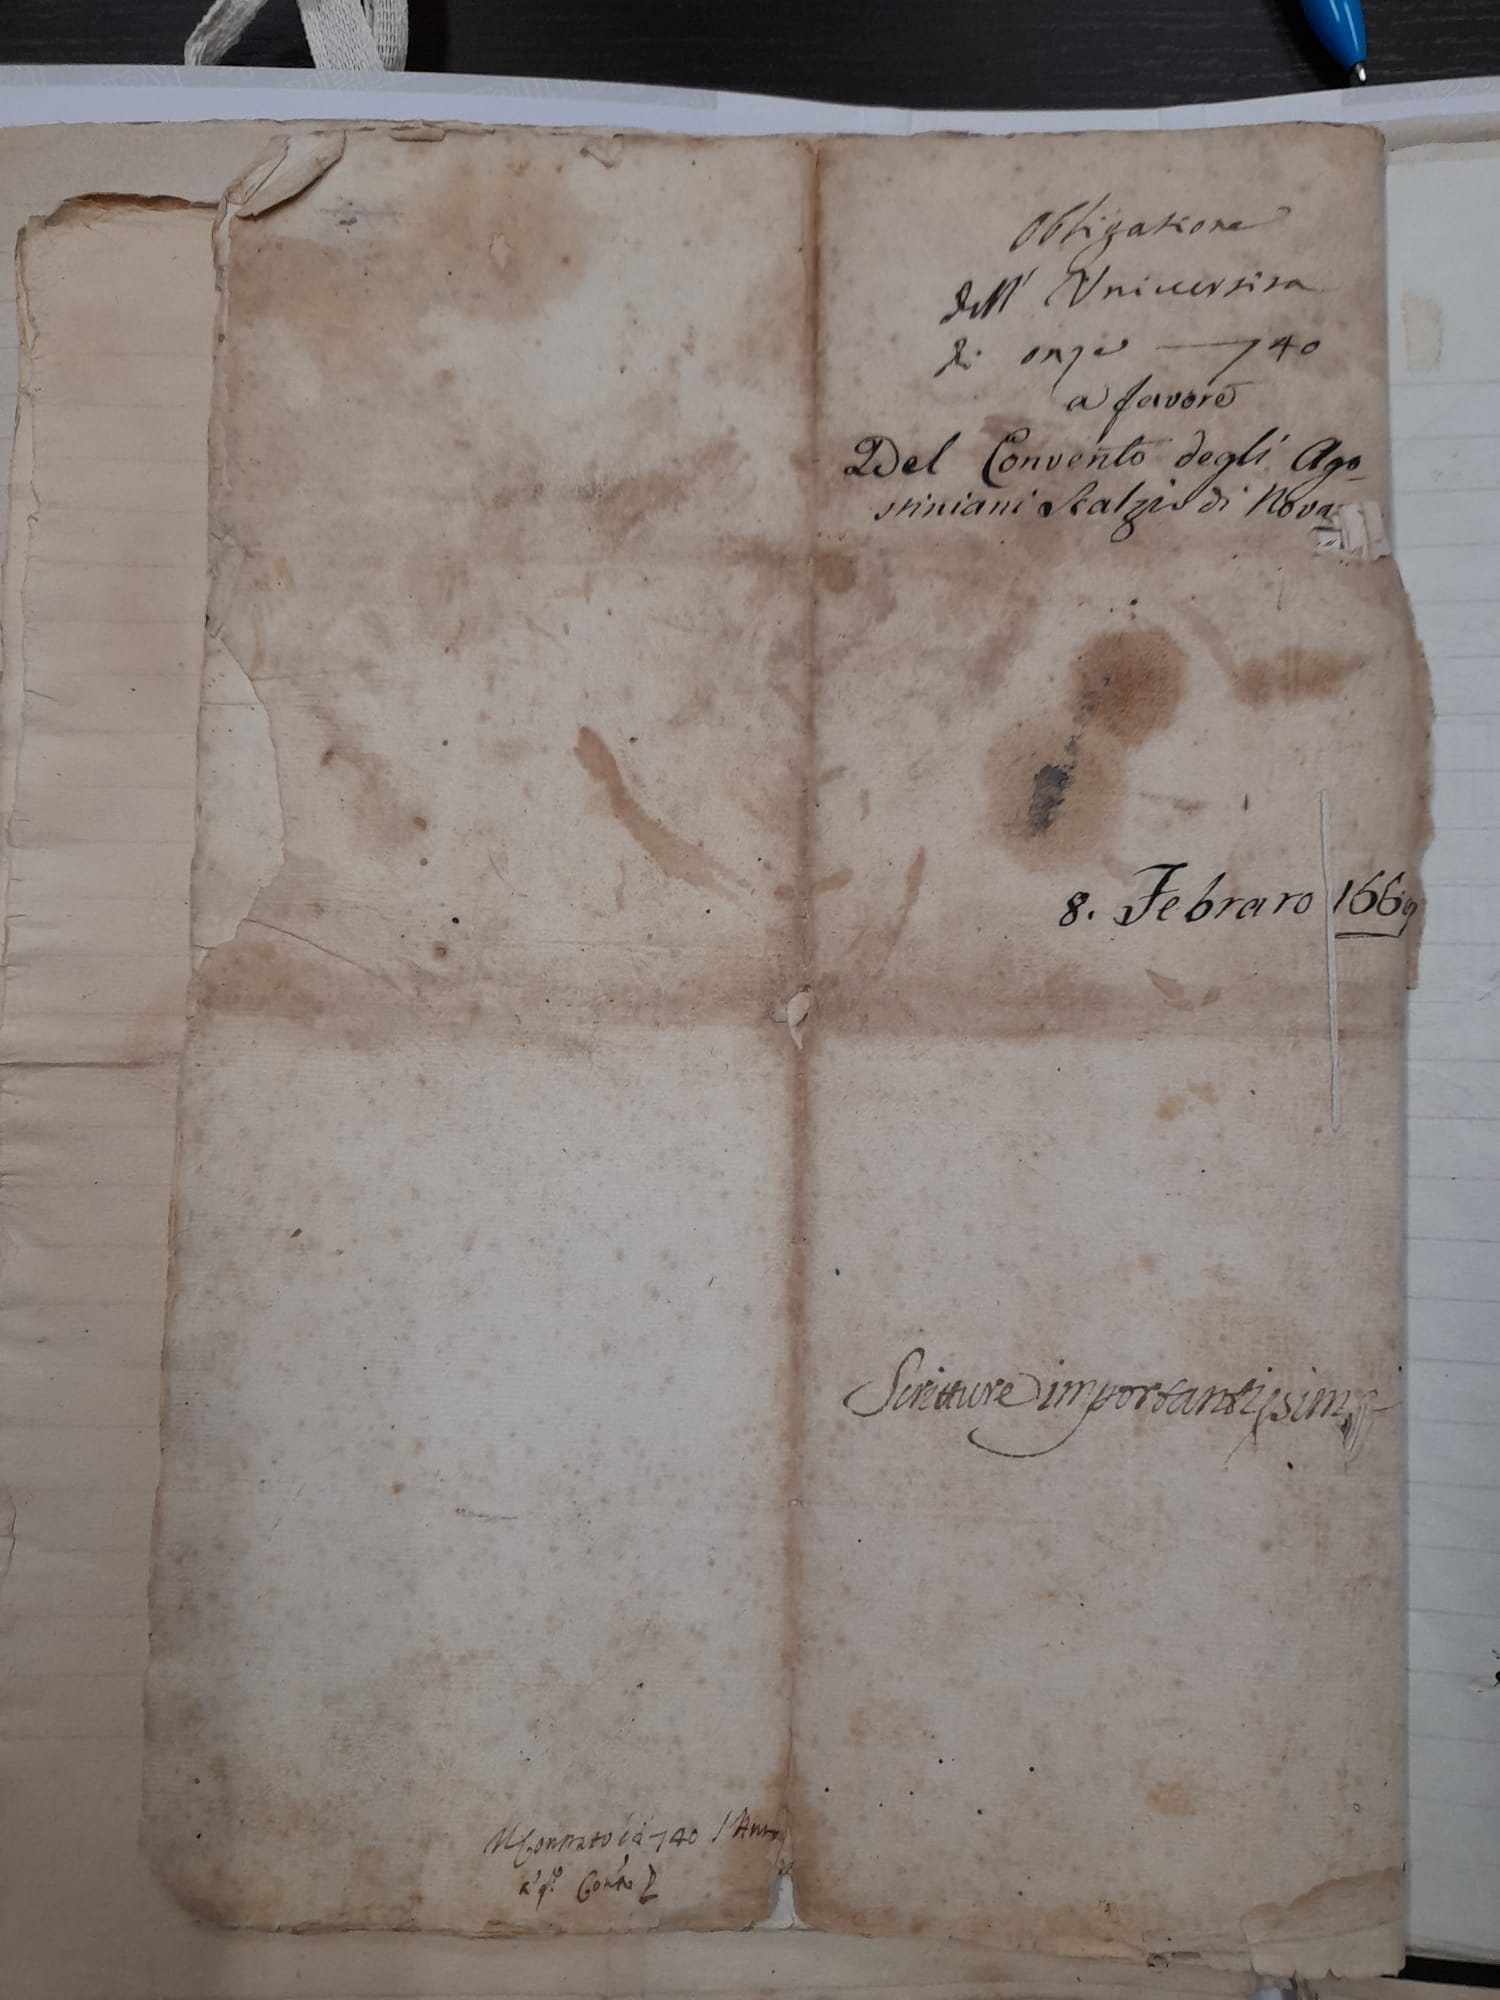 Obligatione
dell' Uniuersita
di onze — 740
a favore
Del Convento degli Ago-
stiniani Scalzi di Nova
8. Febraro 1669
Scritture importantissime
Il Contratto è di 740